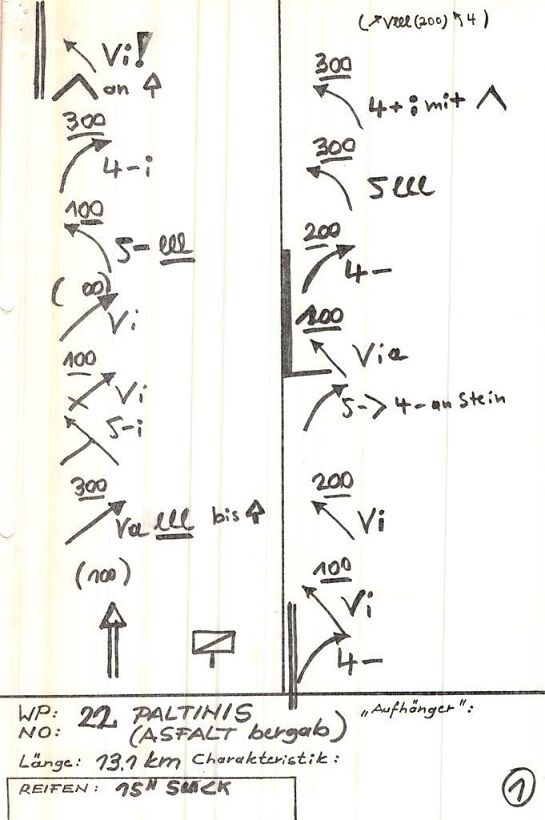 Vi!
an
300
4-i
100
5-lll
(00)
Vi
100
Vi
5-i
300
Va lll bis
(100)
(Vlll (200) 4)
300
4+i mit
300
5lll
200
4-
Via
5-> 4-an Stein
200
Vi
100
Vi
4-
WP: 22 PALTINIS
NO: (ASFALT bergab)
Länge: 13.1 km Charakteristik:
REIFEN: 15"
"Aufhänger":
1